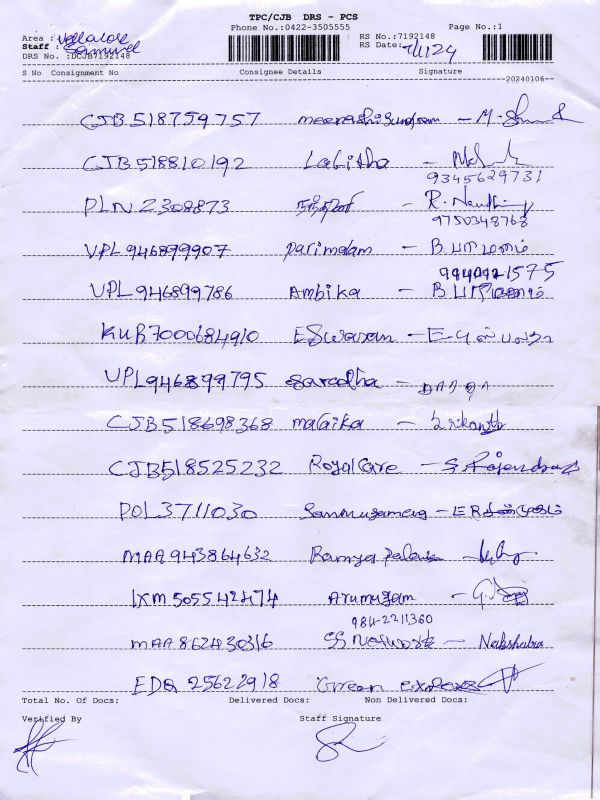 TPC/CJB DRS - PCS
Phone No.:0422-3505555 Page No.:1
Area : Vellalore RS No.:7192148
Staff : Samuvel RS Date: 7/1/24
DRS No. :DCJB7192148
S No Consignment No Consignee Details Signature
20240106
CJB518759757 meenashisundram - M.
CJB518810192 Lalitha -
9345629731
PLN2308873 நந்தினி - R. Nandhini
9750348768
VPL946899907 Parimalam - B பரிமளம்
1575
VPL946899786 Ambika - B பரிமளம்
KUR7000684910 Eswaran - E
VPL946899795 Saradha - சாரதா
CJB518698368 malika - Srikanth
CJB518525232 Royal Care - S. Rajendran
POL3711030 -
MAA943864632 Ramya -
IXM505542474 Arumugam - G.
984-2211360
MAA862430316 SS Network - Nakshatra
EDQ 25622918 Green express
Total No. Of Docs: Delivered Docs: Non Delivered Docs:
Verified By Staff Signature